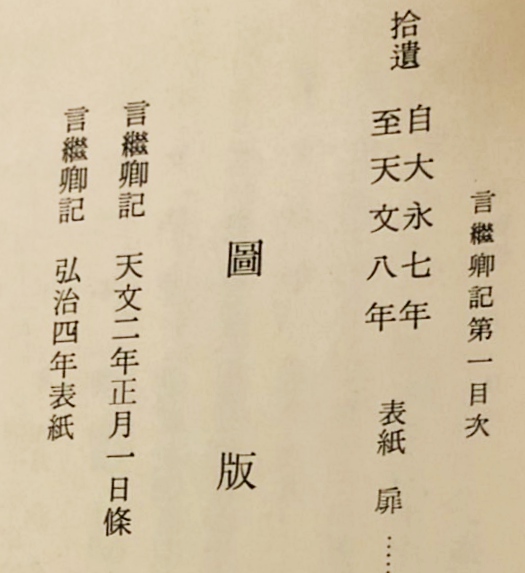 言繼卿記第一目次
拾遺 自大永七年
至天文八年 表紙 扉……
圖版
言繼卿記 天文二年正月一日條
言繼卿記 弘治四年表紙